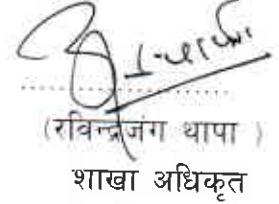 (रविन्द्रजंग थापा )
शाखा अधिकृत